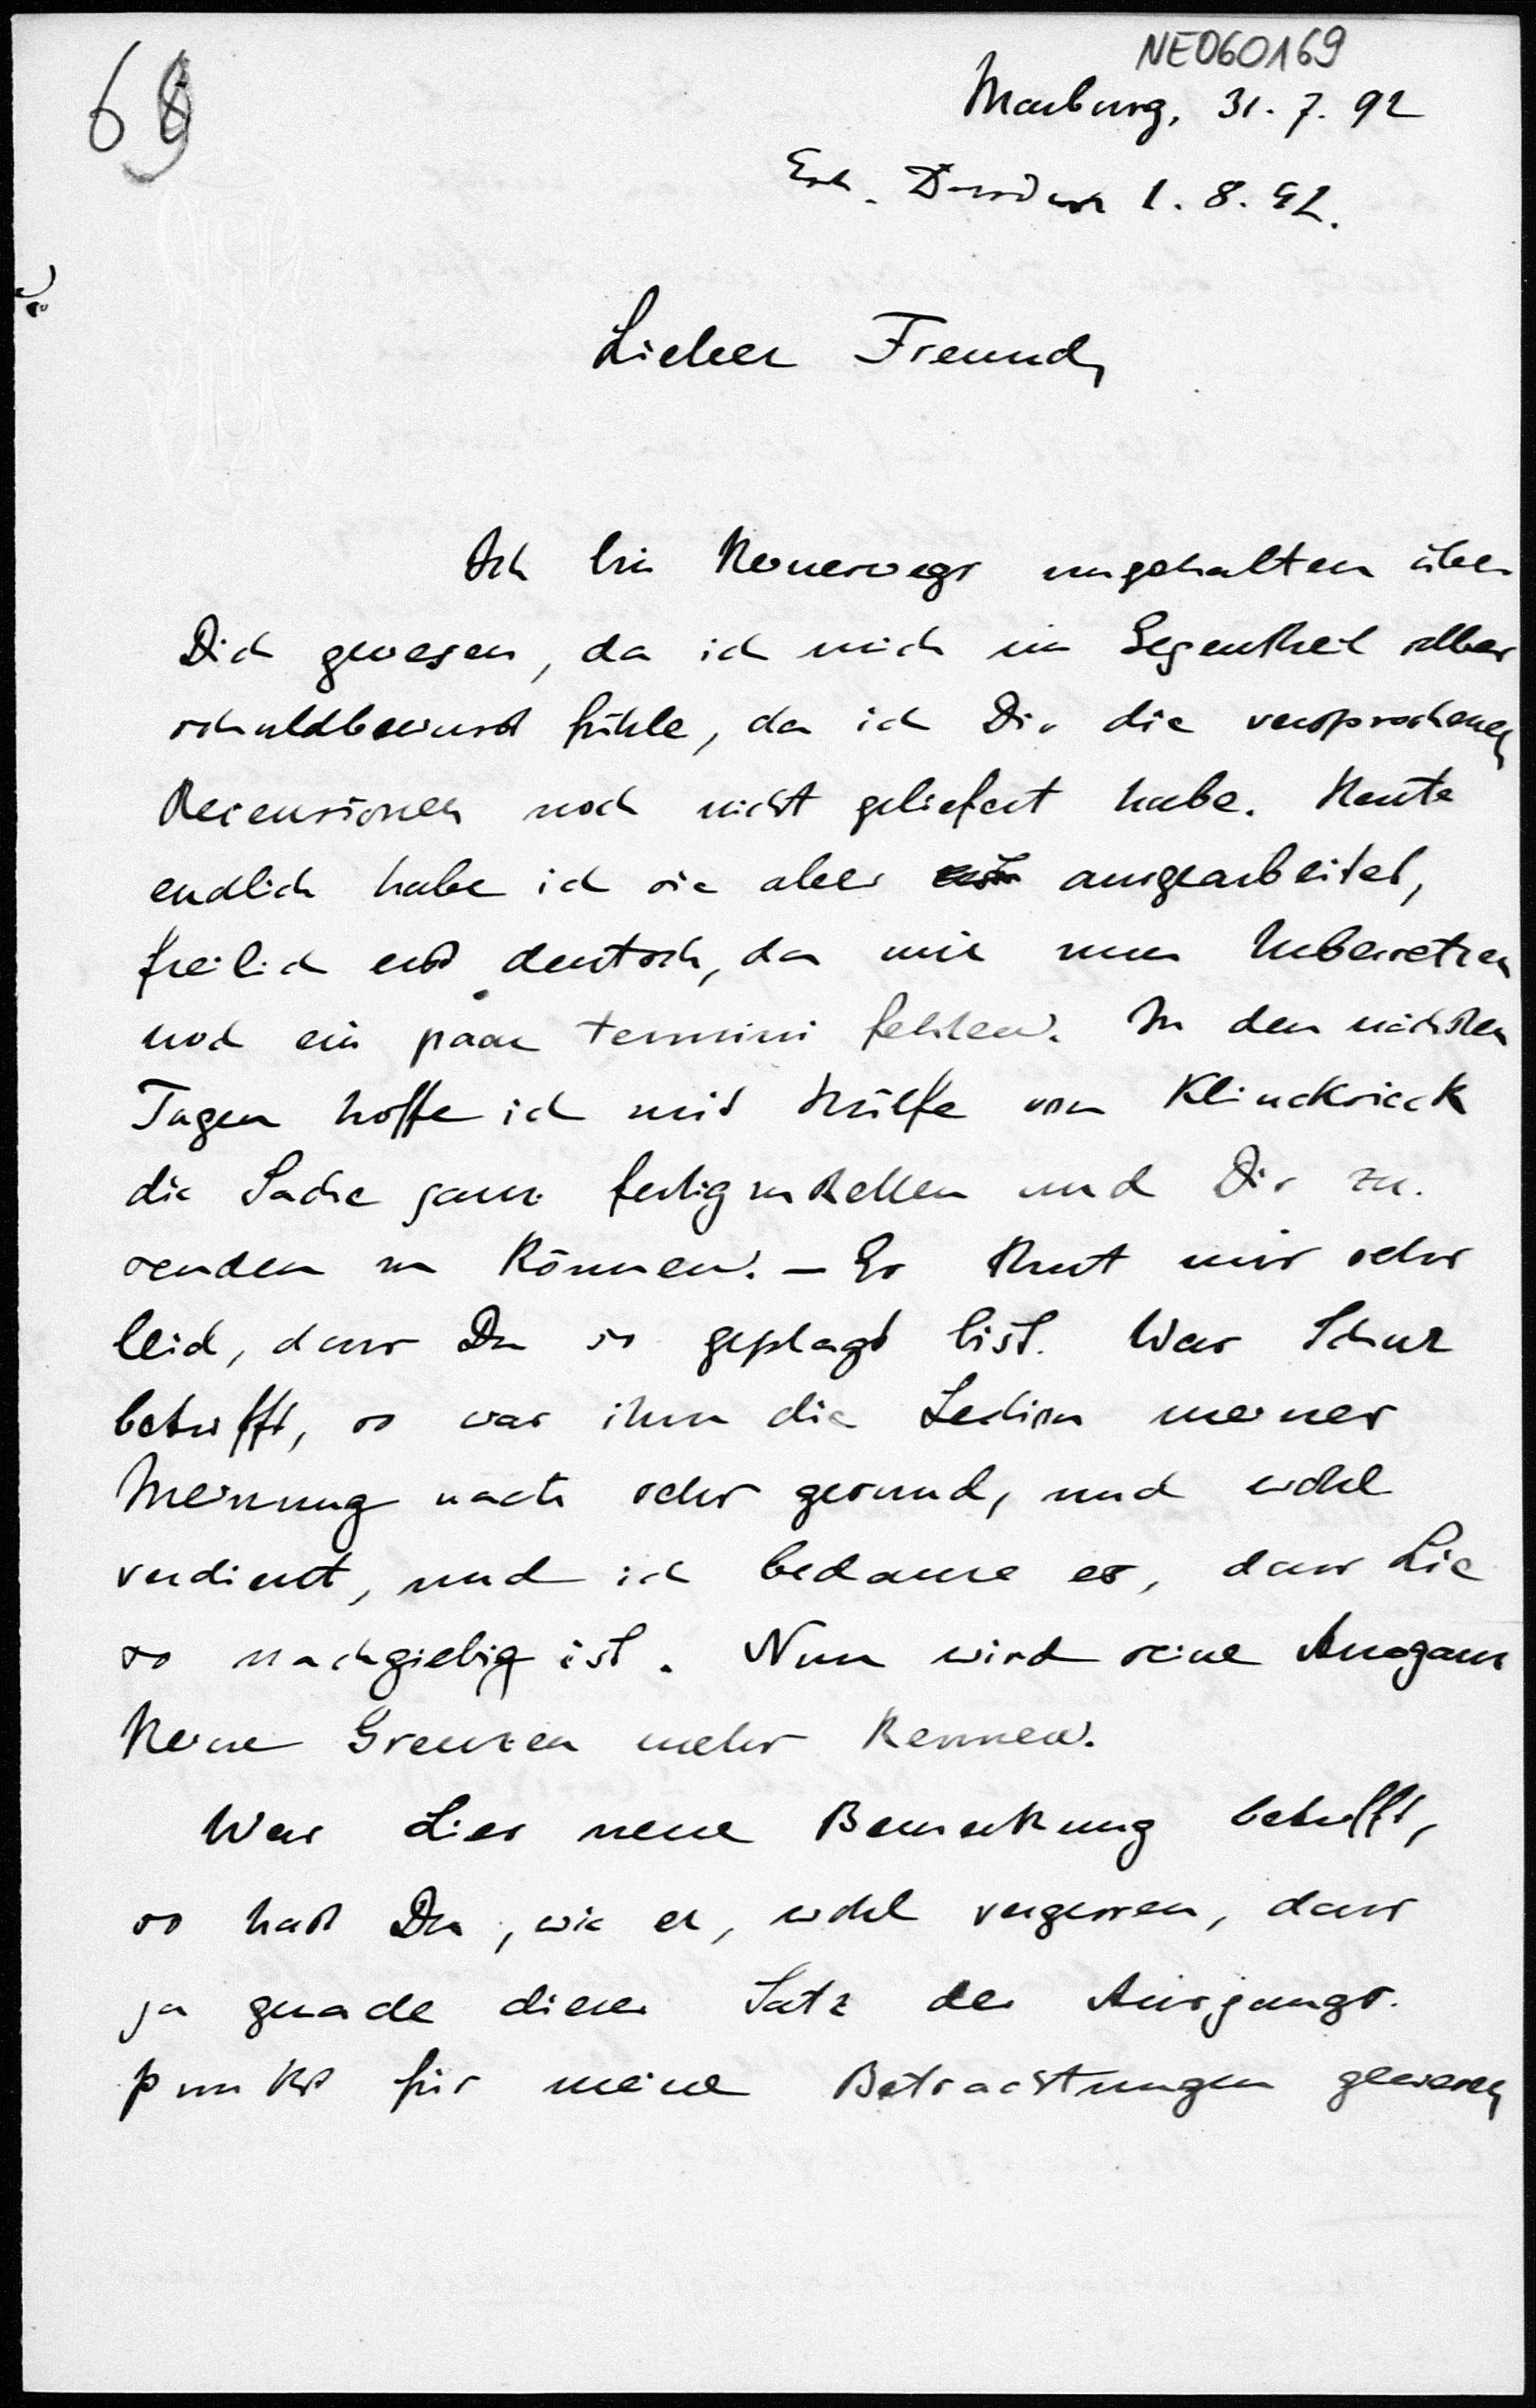 NE060169
69
Marburg, 31. 7. 92
Erh. Dresden 1. 8. 92.
Lieber Freund,
Ich bin keineswegs ungehalten über
Dich gewesen, da ich mich im Gegentheil selber
schuldbewusst fühle, da ich Dir die versprochenen
Recensionen noch nicht geliefert habe. Heute
endlich habe ich sie aber ausgearbeitet,
freilich erst deutsch, da mir zum Uebersetzen
noch ein paar termini fehlen. In den nächsten
Tagen hoffe ich mit Hülfe von Klincksieck
die Sache ganz fertigzustellen und Dir zu-
senden zu können. – Es thut mir sehr
leid, dass Du so geplagt bist. Was Schur
betrifft, so war ihm die Lection meiner
Meinung nach sehr gesund, und wohl
verdient, und ich bedaure es, dass Lie
so nachgiebig ist. Nun wird seine Arroganz
keine Grenzen mehr kennen.
Was Lies neue Bemerkung betrifft,
so hast Du, wie er, wohl vergessen, dass
ja gerade dieser Satz der Ausgangs-
punkt für meine Betrachtungen gewesen